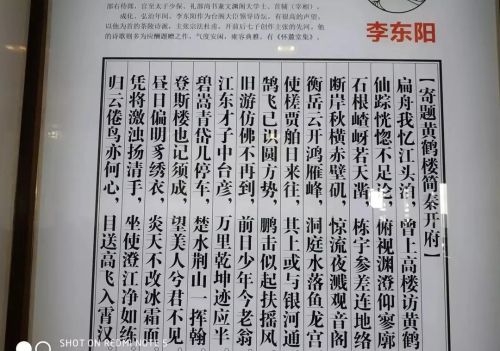 部右侍郎,官至太子少保、礼部尚书兼文渊阁大学士。首辅(宰相)。
成化、弘治年间,李东阳作为台阁大臣领导诗坛,有很高的声望。
以他为首的茶陵诗派,主张宗法杜甫,开前后七子创作主张的先河。他
的诗歌颇多应酬题赠之作,气度安闲,雍容典雅。有《怀麓堂集》。
李东阳
【寄题黄鹤楼简秦开府】
扁舟我忆江头泊,曾上高楼访黄鹤
仙踪恍惚不足论,俯视渊澄仰寥廓
石根嵖岈若天凿,栋宇参差连地络
断岸秋横赤壁矶,惊流夜溅观音阁
衡岳云开鸿雁峰,洞庭水落鱼龙宫
使槎贾舶日来往,其上或与银河通
鹄飞已识圆方势,鹏击似起扶摇风
旧游仿佛不再到,前日少年今老翁
江东才子中台彦,万里乾坤迹应半
碧嵩青岱几停车,楚水荆山一挥翰
登斯楼也记须成,望美人兮君不见
昼日偏明豸绣衣,炎天不改冰霜面
凭将激浊扬清手,坐使澄江净如练
归云倦鸟亦何心,目送高飞入霄汉
SHOT ON REDMI NOTE 5